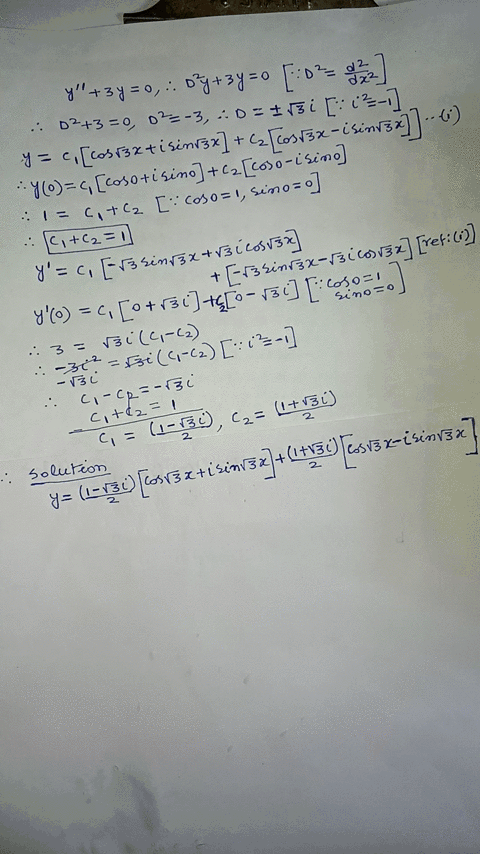 y'' + 3y = 0, ∴ D²y + 3y = 0 [∵ D² = d²/dx²]
∴ D² + 3 = 0, D² = -3, ∴ D = ± √3 i [∵ i² = -1]
y = C₁[cos√3x + i sin√3x] + C₂[cos√3x - i sin√3x] ---(i)
∴ y(0) = C₁[cos0 + i sin0] + C₂[cos0 - i sin0]
∴ 1 = C₁ + C₂ [∵ cos0 = 1, sin0 = 0]
∴ C₁ + C₂ = 1
y' = C₁[-√3 sin√3x + √3 i cos√3x]
+ [-√3 sin√3x - √3 i cos√3x] [ref: (i)]
y'(0) = C₁[0 + √3 i] + C₂[0 - √3 i] [∵ cos0 = 1
sin0 = 0]
∴ 3 = √3 i (C₁ - C₂)
∴ -3i² = √3 i (C₁ - C₂) [∵ i² = -1]
-√3 i
∴ C₁ - C₂ = -√3 i
C₁ + C₂ = 1
C₁ = (1-√3 i)/2, C₂ = (1+√3 i)/2
∴ solution
y = (1-√3 i)/2 [cos√3x + i sin√3x] + (1+√3 i)/2 [cos√3x - i sin√3x]